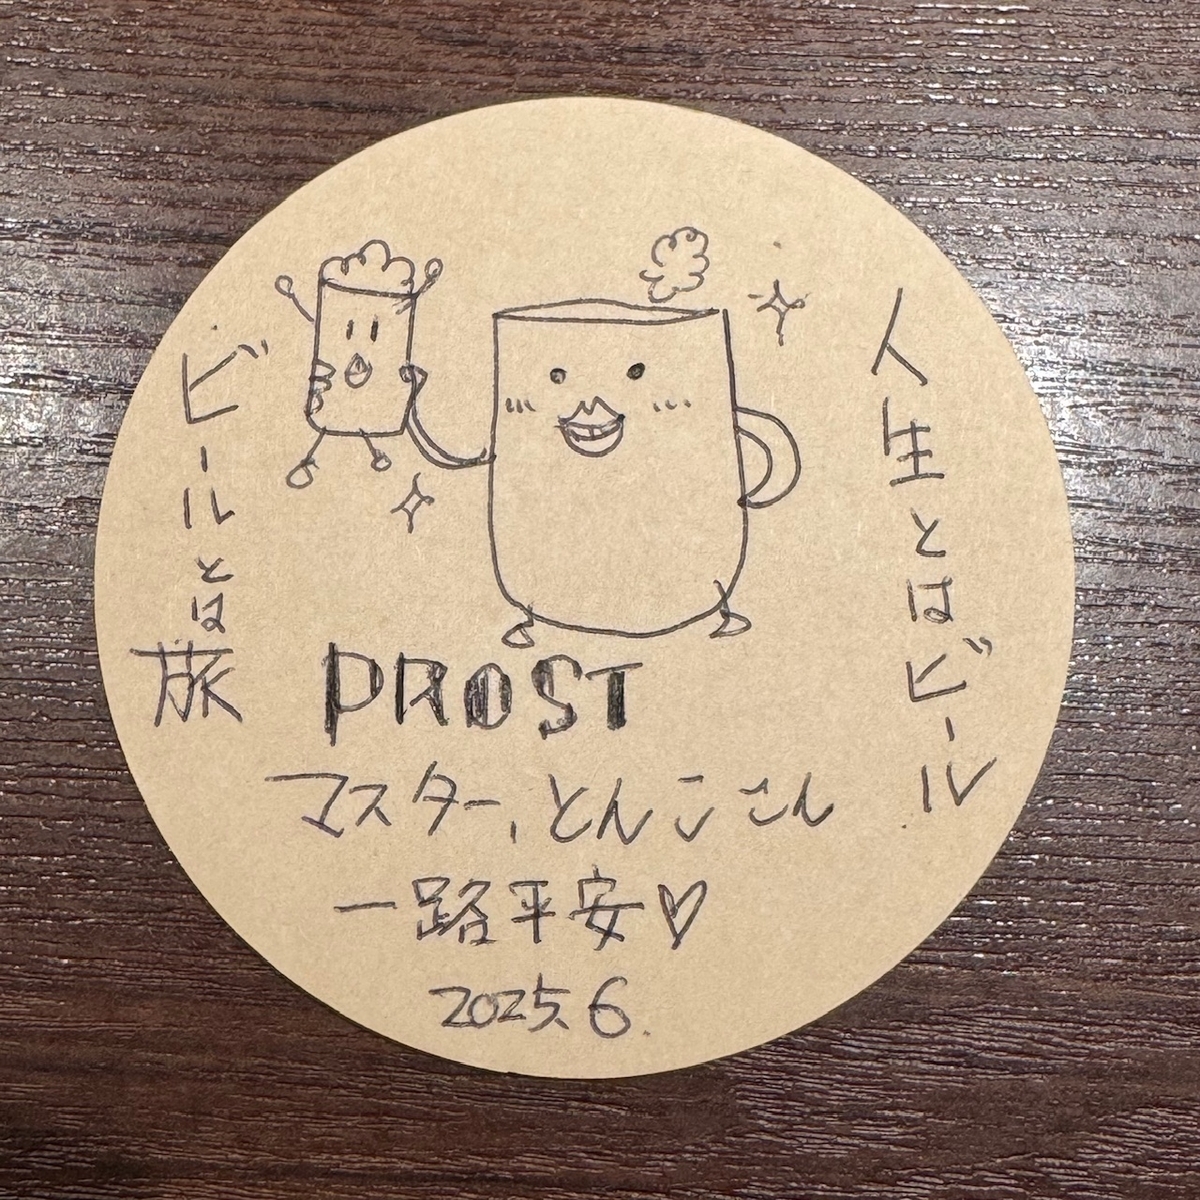 人生とはビール
ビールとは旅
PROST
マスター、とんここん
一路平安♡
2025.6.